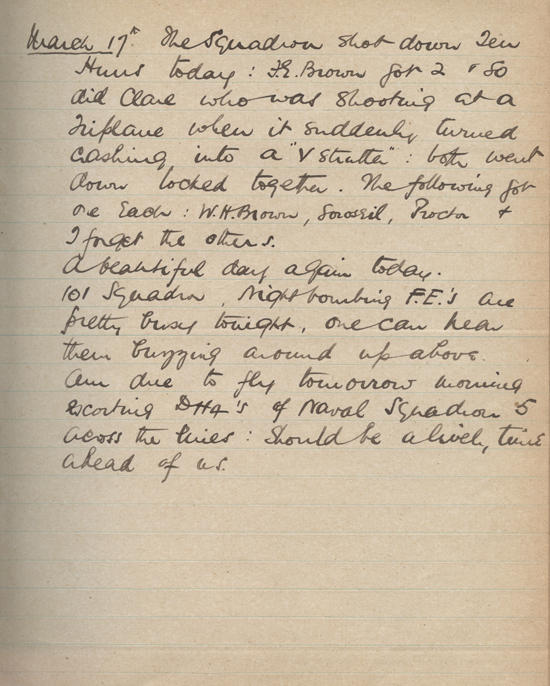 March 17th The Squadron shot down Ten
Huns today : F.E. Brown got 2 & so
did Clare who was shooting at a
Triplane when it suddenly turned
crashing into a "V strutter" : both went
down locked together. The following got
one Each : W.H. Brown, Soroseil, Proctor +
I forget the others.
A beautiful day again today.
101 Squadron, Nightbombing F.E.'s are
pretty busy tonight, one can hear
them buzzing around up above.
Am due to fly tomorrow morning
escorting DH4's of Naval Squadron 5
across the lines : Should be a lively time
ahead of us.